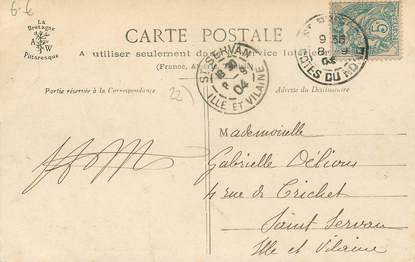 6-6
La
Bretagne
A W
Pittoresque
CARTE POSTALE
A utiliser seulement dans le Service
(France,
Partie réservée à la Correspondance
Adresse du Destinataire
ST SERVAN
04
ILLE ET VILAINE
9
8
04
COTES DU NORD
5
22)
Mademoiselle
Gabrielle Délious
4 rue de Trichet
Saint Servan
Ille et Vilaine